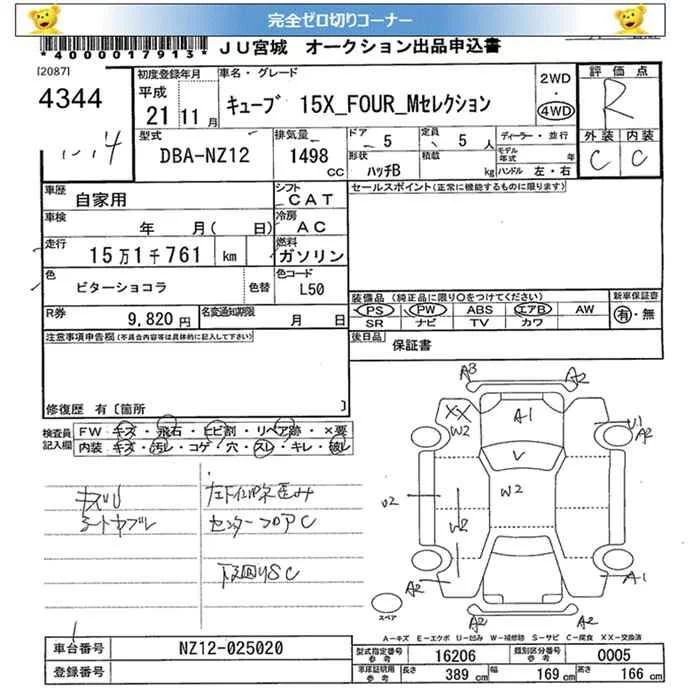 完全ゼロ切りコーナー
*4000017913* JU宮城 オークション出品申込書
[2087]
4344
初度登録年月
平成
21 11月
車名・グレード
キューブ 15X_FOUR_Mセレクション
2WD
・
4WD
評価点
R
外装 内装
C C
型式
DBA-NZ12
排気量
1498
CC
ドア - 5
形状
ハッチB
定員 5人
積載 kg
ディーラー・並行
モデル年式 年
ハンドル 左・右
車歴
自家用
シフト
CAT
セールスポイント(正常に機能するものに限ります)
車検
年 月( 日)
冷房
AC
走行
15万1千761 km
燃料
ガソリン
色
ビターショコラ
色替
色コード
L50
R券
9,820円
名変通知期限
月 日
装備品(純正品に限り○をつけてください)
PS PW ABS エアB AW
SR ナビ TV カワ
新車保証書
有・無
後日品
保証書
注意事項申告欄(不具合内容等は具体的に記入して下さい)
修復歴 有〔箇所 〕
検査員
記入欄
FW キズ・飛石・ヒビ割・リペア跡・×要
内装 キズ・汚レ・コゲ・穴・スレ・キレ・破レ
センターフロアC
下回りSC
A3
A2
XX
W2
A-1
U1
A2
V
W2
U2
W2
A2
A-1
A2
A2
スペア
A-キズ E-エクボ U-凹み W-補修跡 S-サビ C-腐食 XX-交換済
車台番号
NZ12-025020
登録番号
型式指定番号
参考
16206
類別区分番号
参考
0005
車庫証明用
参考
長さ
389 cm
幅
169 cm
高さ
166 cm